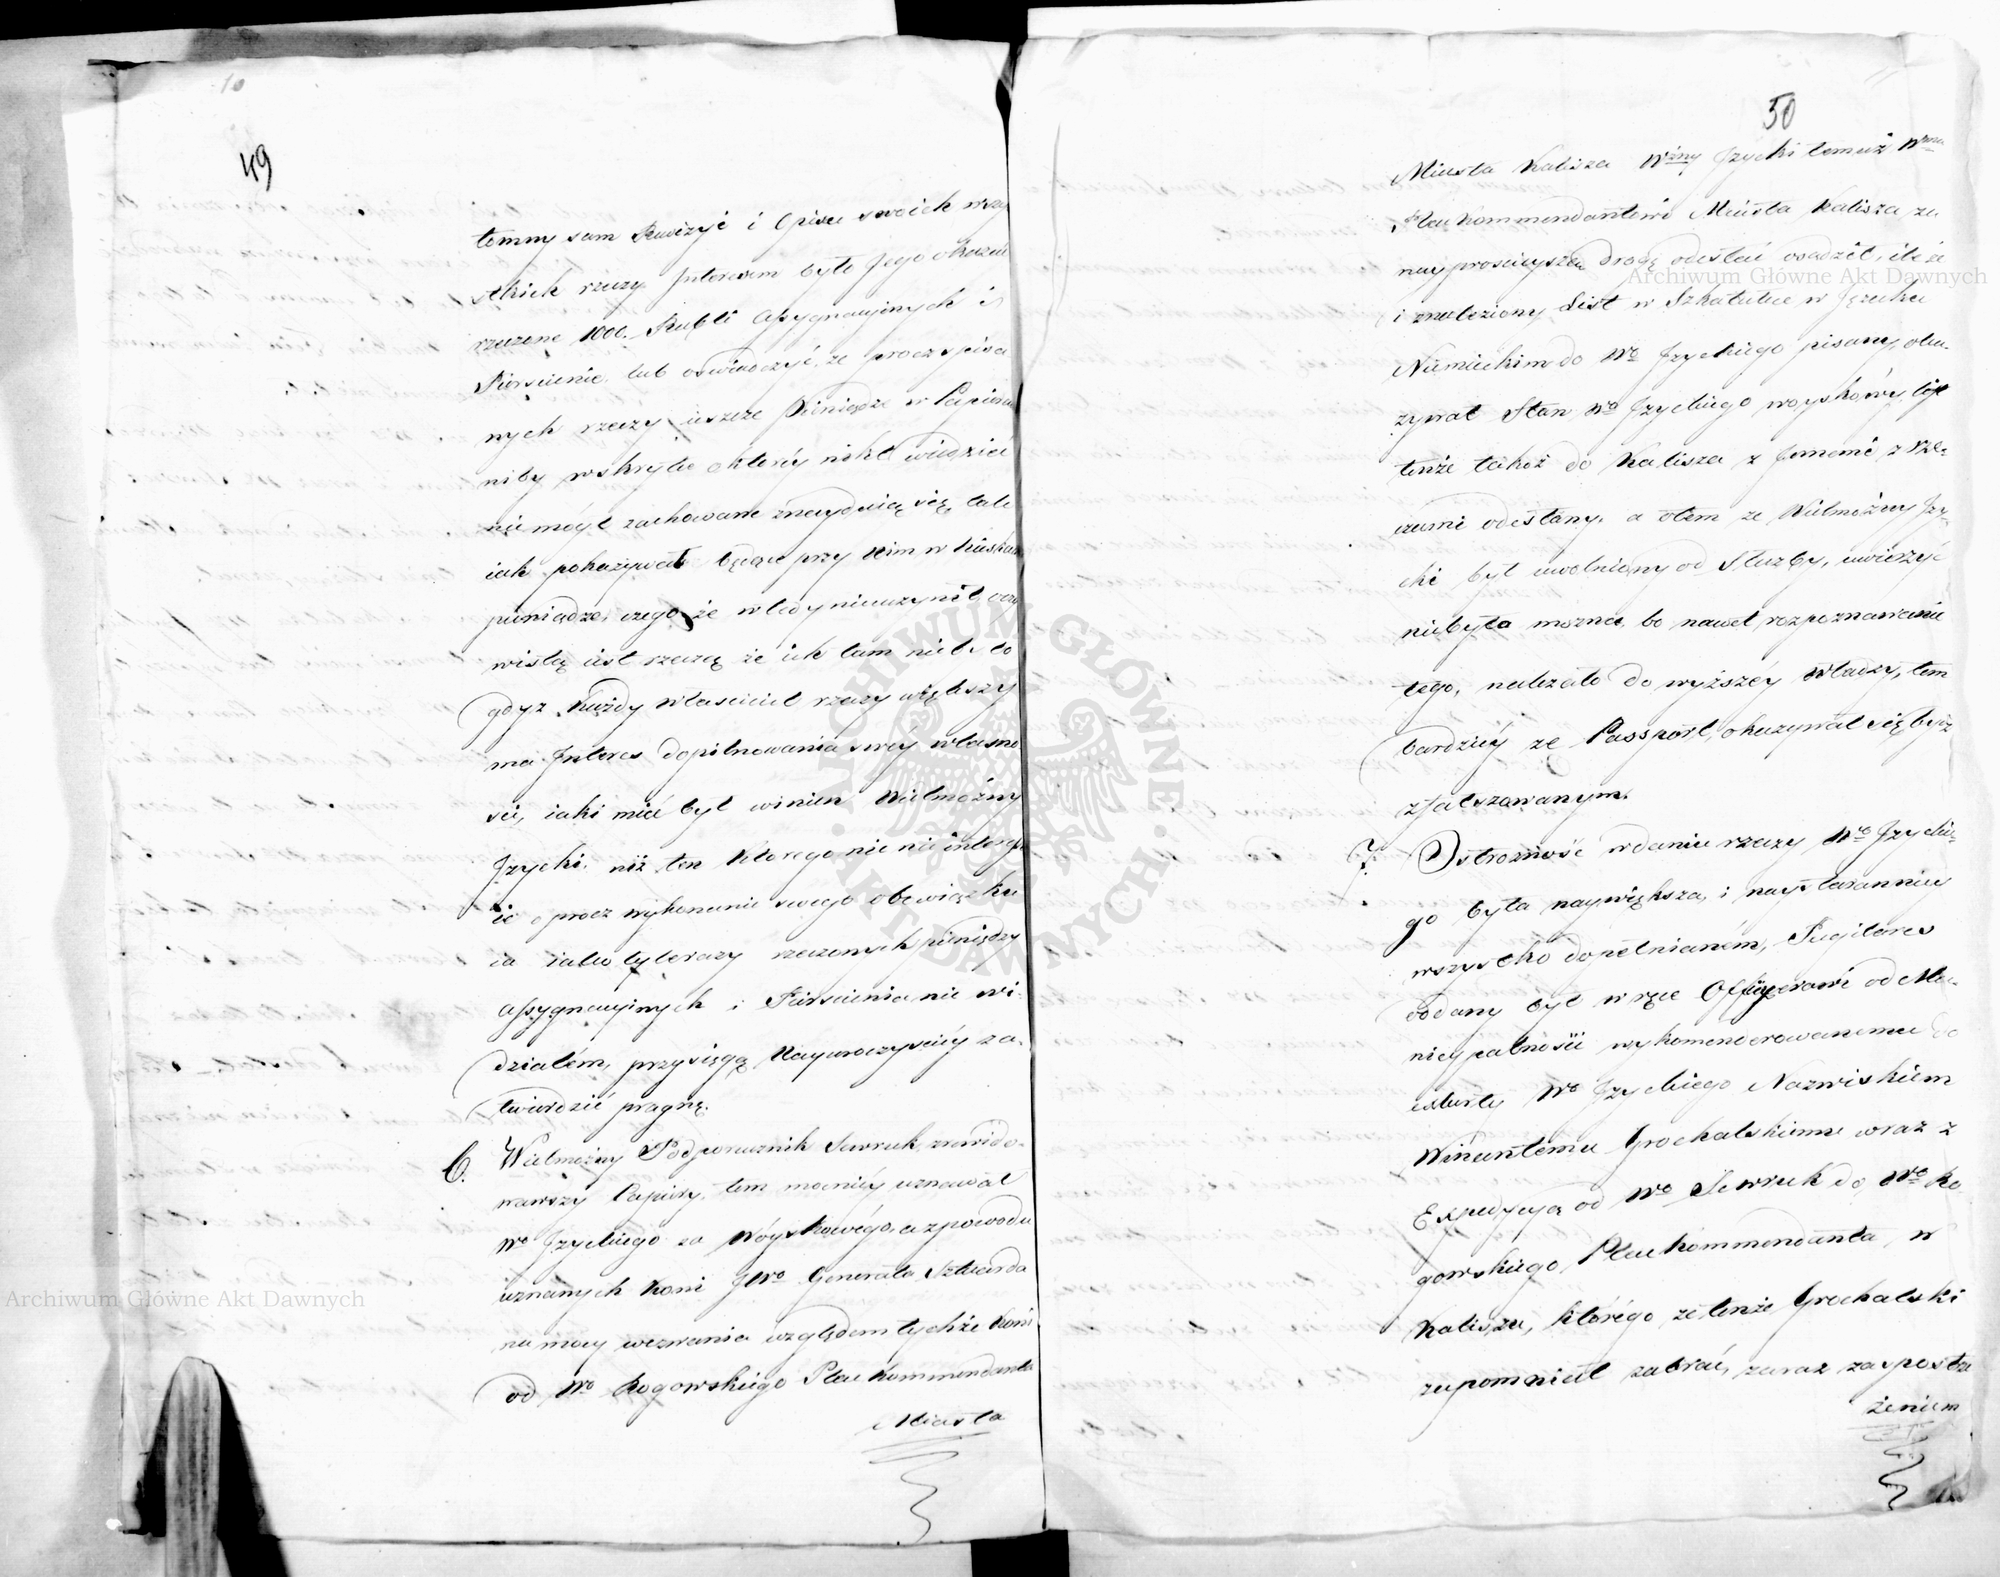 49
tomny sam Rewizyi i Opisu swoich wszy
stkich rzeczy Interesem było Jego okazać
rzeczone 1000. Rubli Assygnacyinych i
Pierscienie, lub oswiadczyć, że procz spisa
nych rzeczy ieszcze Pieniądze w Papierach
niby w skrytce o ktoréy nikt wiedzieć
nie mógł zachowane znayduią się, tak
iak pokazywał będące przy Nim w Kieszeni
pieniądze, czego że wtedy nieuczynił, oczy
wistą iest rzeczą że ich tam niebyło
gdyz Każdy Własciciel rzeczy większy
ma Interes dopilnowania swéy własno
sci, iaki mieć był winien Wielmożny
Jzycki, niż ten Którego nic nie interessu
ie oprocz wykonania swego obowiązku
ia iako tyle razy rzeczonych pieniędzy
assygnacyinych i Pierscienia nie wi-
działem, przysięgą Nayuroczysciéy za-
twierdzić pragnę.
6. Wielmożny Podporucznik Sewruk zrewido-
wawszy Papiery, tem mocniéy uznawał
Wo Jzyckiego za Wóyskowégo, a zpowodu
uznanych Koni JWo Generała Sztuarda
na mocy wezwania względem tychże Koni
od Wo Rogowskiego Plac Kommendanta
Miasta
50
Miasta Kalisza Wżny Jzycki temuż Wmu
Plac Kommendantowi Miasta Kalisza za
nayprosciyszą drogę odesłać osądził, ile że
i znaleziony List w Szkatułce w Języku
Niemieckim do Wo Jzyckiego pisany, oka-
zywał Stan Wo Jzyckiego woyskówy list
tenże także do Kalisza z Jemomć z rze-
czami odesłany, a otem ze Wielmożny Jzy-
cki był uwolniony od Służby, uwierzyć
niebyło można, bo nawet rozpoznawanie
tego, należało do wyższéy Władzy, tem
bardziéy ze Passport okazywał się bydź
zfałszowanym.
7. Ostrożność w daniu rzeczy Wo Jzyckie-
go była naywiększa, i naystaranniey
wszystko dopełniałem, Pugilares
oddany był w ręce Officyerowi od Mu-
nicypalności wykomenderowanemu do
eskorty Wo Jzyckiego Nazwiskiem
Wincentemu Grochalskiemu wraz z
Expedycyą od Wo Sewruk do Wo Ro
gowskiego Plac Kommendanta w
Kaliszu, którego ze tenże Grochalski
zapomniał zabrać, zaraz za spostrze
żeniem
Archiwum Główne Akt Dawnych
Archiwum Główne Akt Dawnych
ARCHIWUM GŁÓWNE AKT DAWNYCH